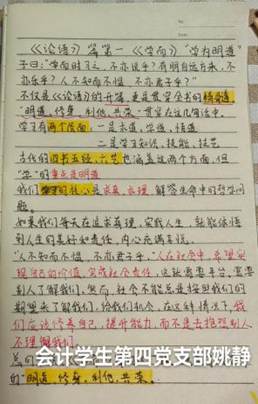 《论语》第一《学而》"学为明道"
子曰:"学而时习之,不亦说乎?有朋自远方来,不
亦乐乎?人不知而不愠,不亦君子乎?"
不仅是《论语》的开篇,更是贯穿全书的
"明道、修身、利他、共荣"贯穿在这几句话中。
学习有两个层面:一是求道,学道,悟道
二是学习知识、技能、技艺
古代的四书五经、六艺也涵盖这两个方面,但
"学"的重点是明道
我们的核心是求真、求理,解答生命中的哲学问
题。
如果我们每天在追求真理,实践人生,就能体悟
到人生的美好和责任,内心充满喜悦。
"人不知而不愠,不亦君子乎。"人在社会中,希望实
现自己的价值,完成社会责任,这就需要平台,需要
别人了解我们。然而,社会不能总是按照我们的
期望来了解我们,给我们机会,在这种情况下,我
们应该修养自己,提升能力,而不是去抱怨别人
不理解我们。
会计学生第四党支部姚静
的"明道、修身、利他、共荣。